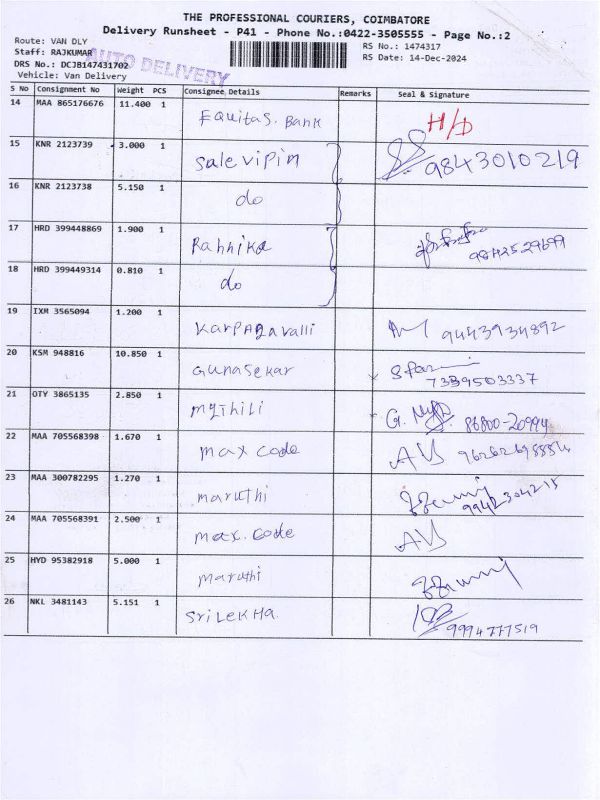 THE PROFESSIONAL COURIERS, COIMBATORE
Delivery Runsheet - P41 - Phone No.:0422-3505555 - Page No.:2
Route: VAN DLY
RS No.: 1474317
Staff: RAJKUMAR
RS Date: 14-Dec-2024
AUTO DELIVERY
DRS No.: DCJB147431702
Vehicle: Van Delivery
S No Consignment No Weight PCS Consignee Details Remarks Seal & Signature
14 MAA 865176676 11.400 1 Equitas. Bank H/D
15 KNR 2123739 3.000 1 Sale vipin 9843010219
16 KNR 2123738 5.150 1 do
17 HRD 399448869 1.900 1 9842529699
18 HRD 399449314 0.810 1 do
19 IXM 3565094 1.200 1 Karpagavalli 9443934892
20 KSM 948816 10.850 1 Gunasekar 7339503337
21 OTY 3865135 2.850 1 Mythili 86800-20994
22 MAA 705568398 1.670 1 max code
23 MAA 300782295 1.270 1 maruthi 9942304215
24 MAA 705568391 2.500 1 max. code
25 HYD 95382918 5.000 1 maruthi
26 NKL 3481143 5.151 1 Sri Lekha. 9994777519